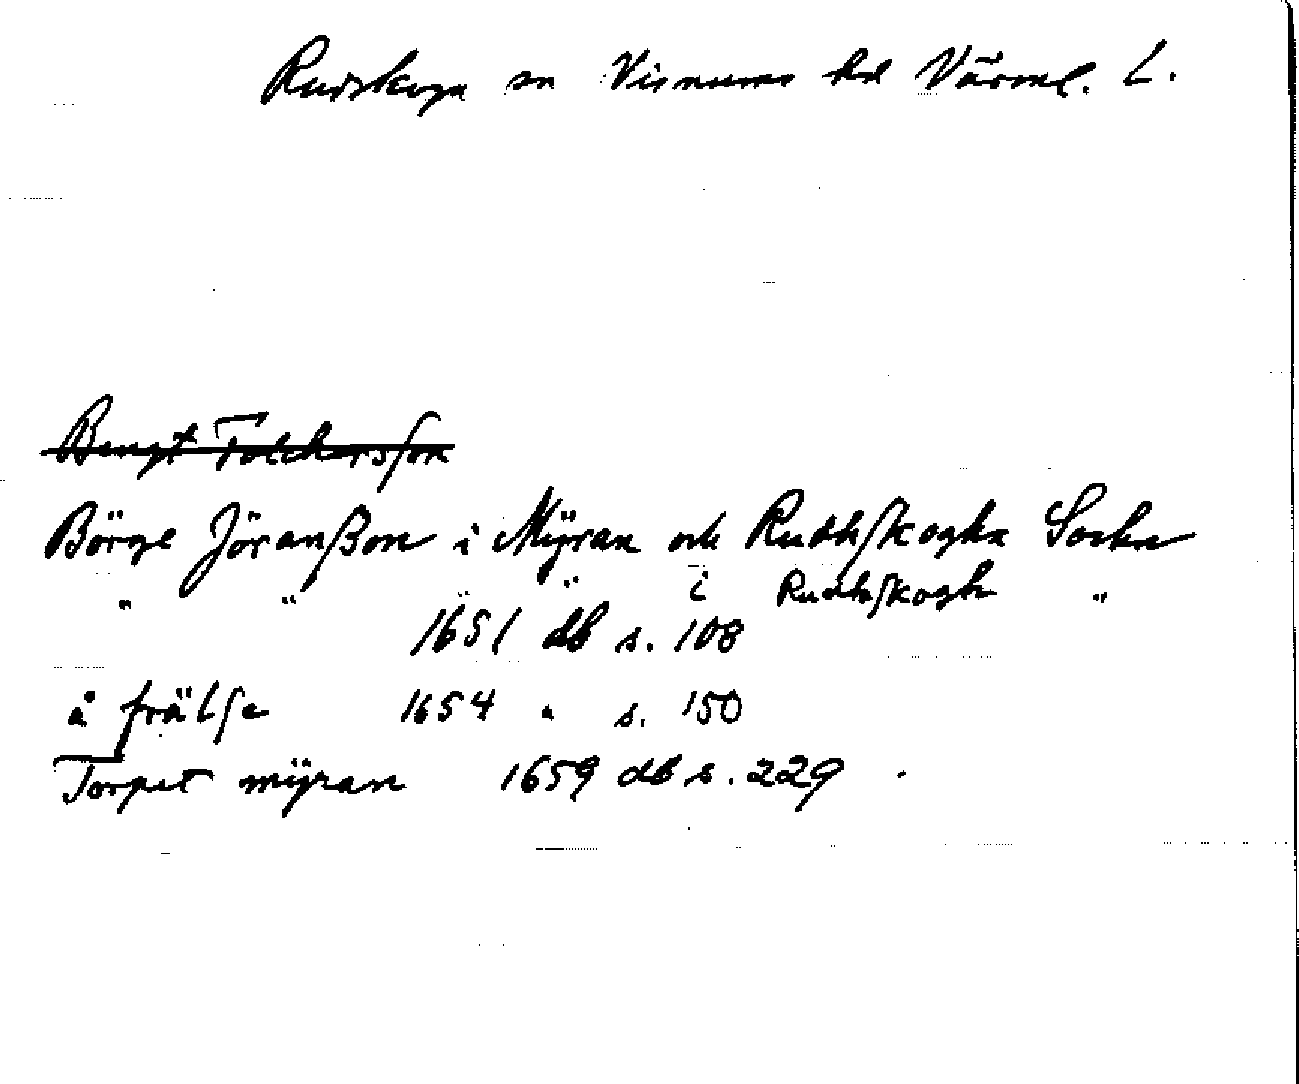 Rudskoga sn Visnums hd Värml. L.
Bengt Tolckersson
Börge Jöranßon i Mÿran och Rudhskogha Sockn
" " " " i Rudhskogh "
1651 db s. 108
å frälse 1654 " s. 150
Torpet mÿran 1659 db s. 229.